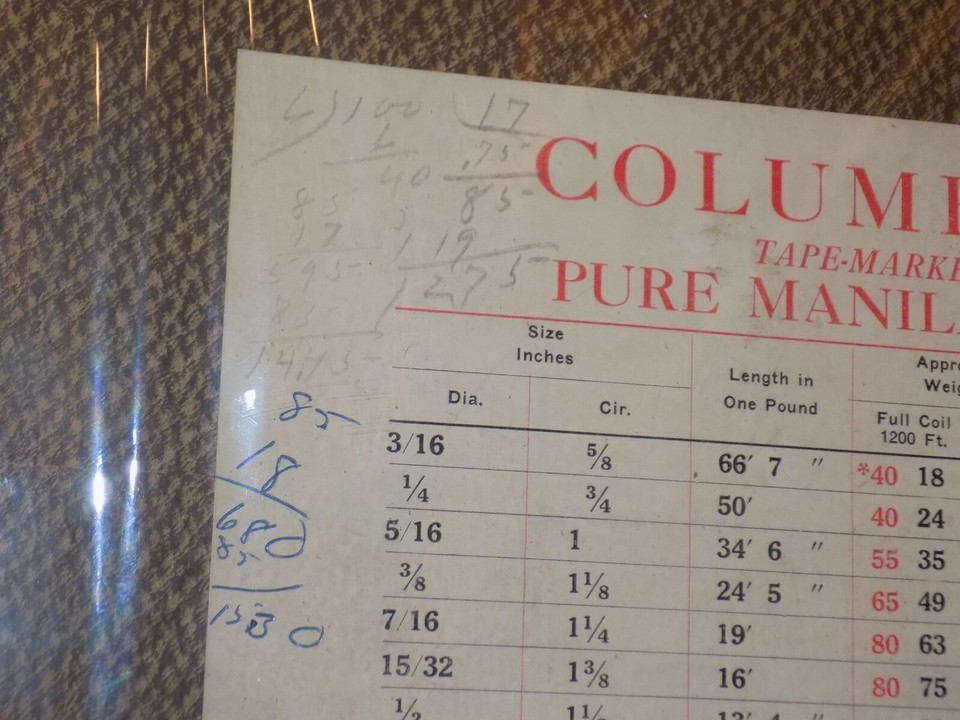 6)100 17
6 .75
40 85
85
17 119
595 1275
85
14.75
COLUM
TAPE-MARKE
PURE MANIL
Size
Inches
Length in
One Pound
Appro
Weig
Dia. Cir. Full Coil
1200 Ft.
3/16 5/8 66′ 7 ″ *40 18
1/4 3/4 50′ 40 24
5/16 1 34′ 6 ″ 55 35
3/8 1 1/8 24′ 5 ″ 65 49
7/16 1 1/4 19′ 80 63
15/32 1 3/8 16′ 80 75
1/2 1 1/2
85
18
680
85
1530